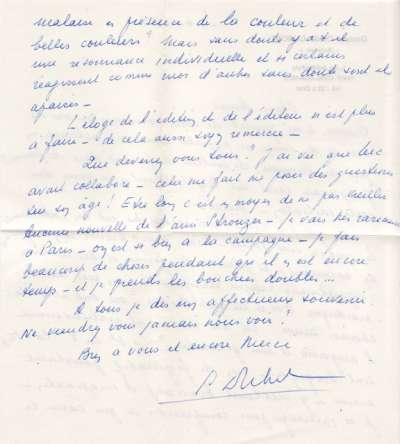 malain en présence de la couleur et de
belles couleurs? Mais sans doute y a t-il
une resonnance individuelle et si certains
reagissent comme moi d'autres sans doute sont
L'éloge de l'edition et de l'éditeur n'est plus
à faire - de cela aussi soyez remercié -
Que devenez vous tous? J'ai vu que Luc
avait collaboré - cela me fait me poser des questions
sur son âge! Etre loin c'est un moyen de ne pas vieillir
Aucune nouvelle de l'ami - je vais très rarement
à Paris - on est si bien à la campagne - je fais
beaucoup de choses pendant que il en est encore
temps - et je prends les bouchées doubles...
A tous je dis mes affectueux souvenirs
Ne viendrez vous jamais nous voir?
Bien a vous et encore Merci